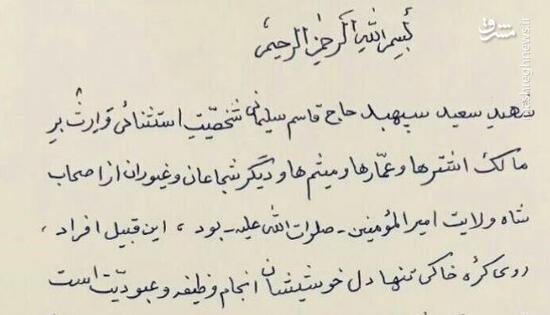 بسم الله الرحمن الرحیم
شهید سعید سپهبد حاج قاسم سلیمانی شخصیّت استثنائی و وارث بر
مالک اشترها و عمّارها و میثم‌ها و دیگر شجاعان و غیوران از اصحاب
شاه ولایت امیرالمؤمنین - صلوات الله علیه - بود ، این قبیل افراد ،
روی کره خاکی تنها دل خوشیشان انجام وظیفه و عبودیّت است
مشرق
mashreghnews.ir